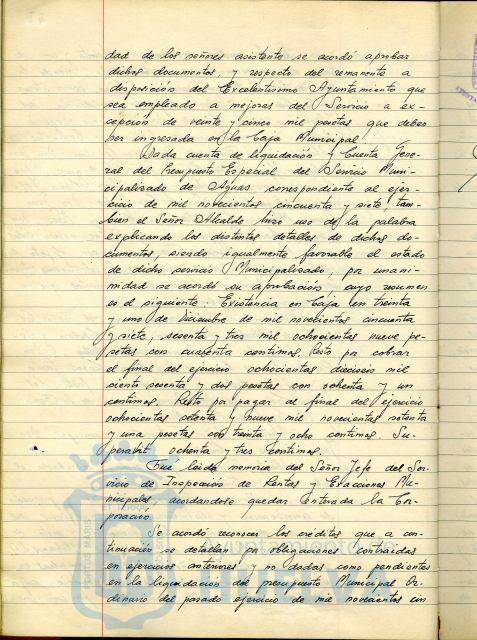 dad de los señores asistente se acordó aprobar
dichos documentos, y respecto del remanente a
disposición del Excelentísimo Ayuntamiento que
sea empleado a mejoras del Servicio a ex-
cepción de veinte y cinco mil pesetas que deben
ser ingresada en la Caja Municipal.
Dada cuenta de liquidación y Cuenta Gene-
ral del Presupuesto Especial del Servicio Muni-
cipalizado de Aguas correspondiente al ejer-
cicio de mil novecientos cincuenta y siete, tam-
bien el Señor Alcalde hizo uso de la palabra
explicando los distintos detalles de dichos do-
cumentos, siendo igualmente favorable el estado
de dicho servicio Municipalizado, por unani-
midad se acordó su aprobación, cuyo resumen
es el siguiente: Existencia en Caja en treinta
y uno de Diciembre de mil novecientos cincuenta
y siete, sesenta y tres mil ochocientos nueve pe-
setas con cuarenta centimos. Resto por cobrar
el final del ejercicio ochocientas dieciseis mil
ciento sesenta y dos pesetas con ochenta y un
centimos. Resto por pagar al final del ejercicio
ochocientas setenta y nueve mil novecientas setenta
y una pesetas con treinta y ocho centimos. Su-
perabit ochenta y tres centimos.
Fué leida memoria del Señor Jefe del Ser-
vicio de Inspección de Rentas y Exacciones Mu-
nicipales acordandose quedar enterada la Cor-
poración.
Se acordó reconocer los créditos que a con-
tinuación se detallan por obligaciones contraidas
en ejercicios anteriores y no dadas como pendientes
en la liquidación del presupuesto Municipal Or-
dinario del pasado ejercicio de mil novecientos cin